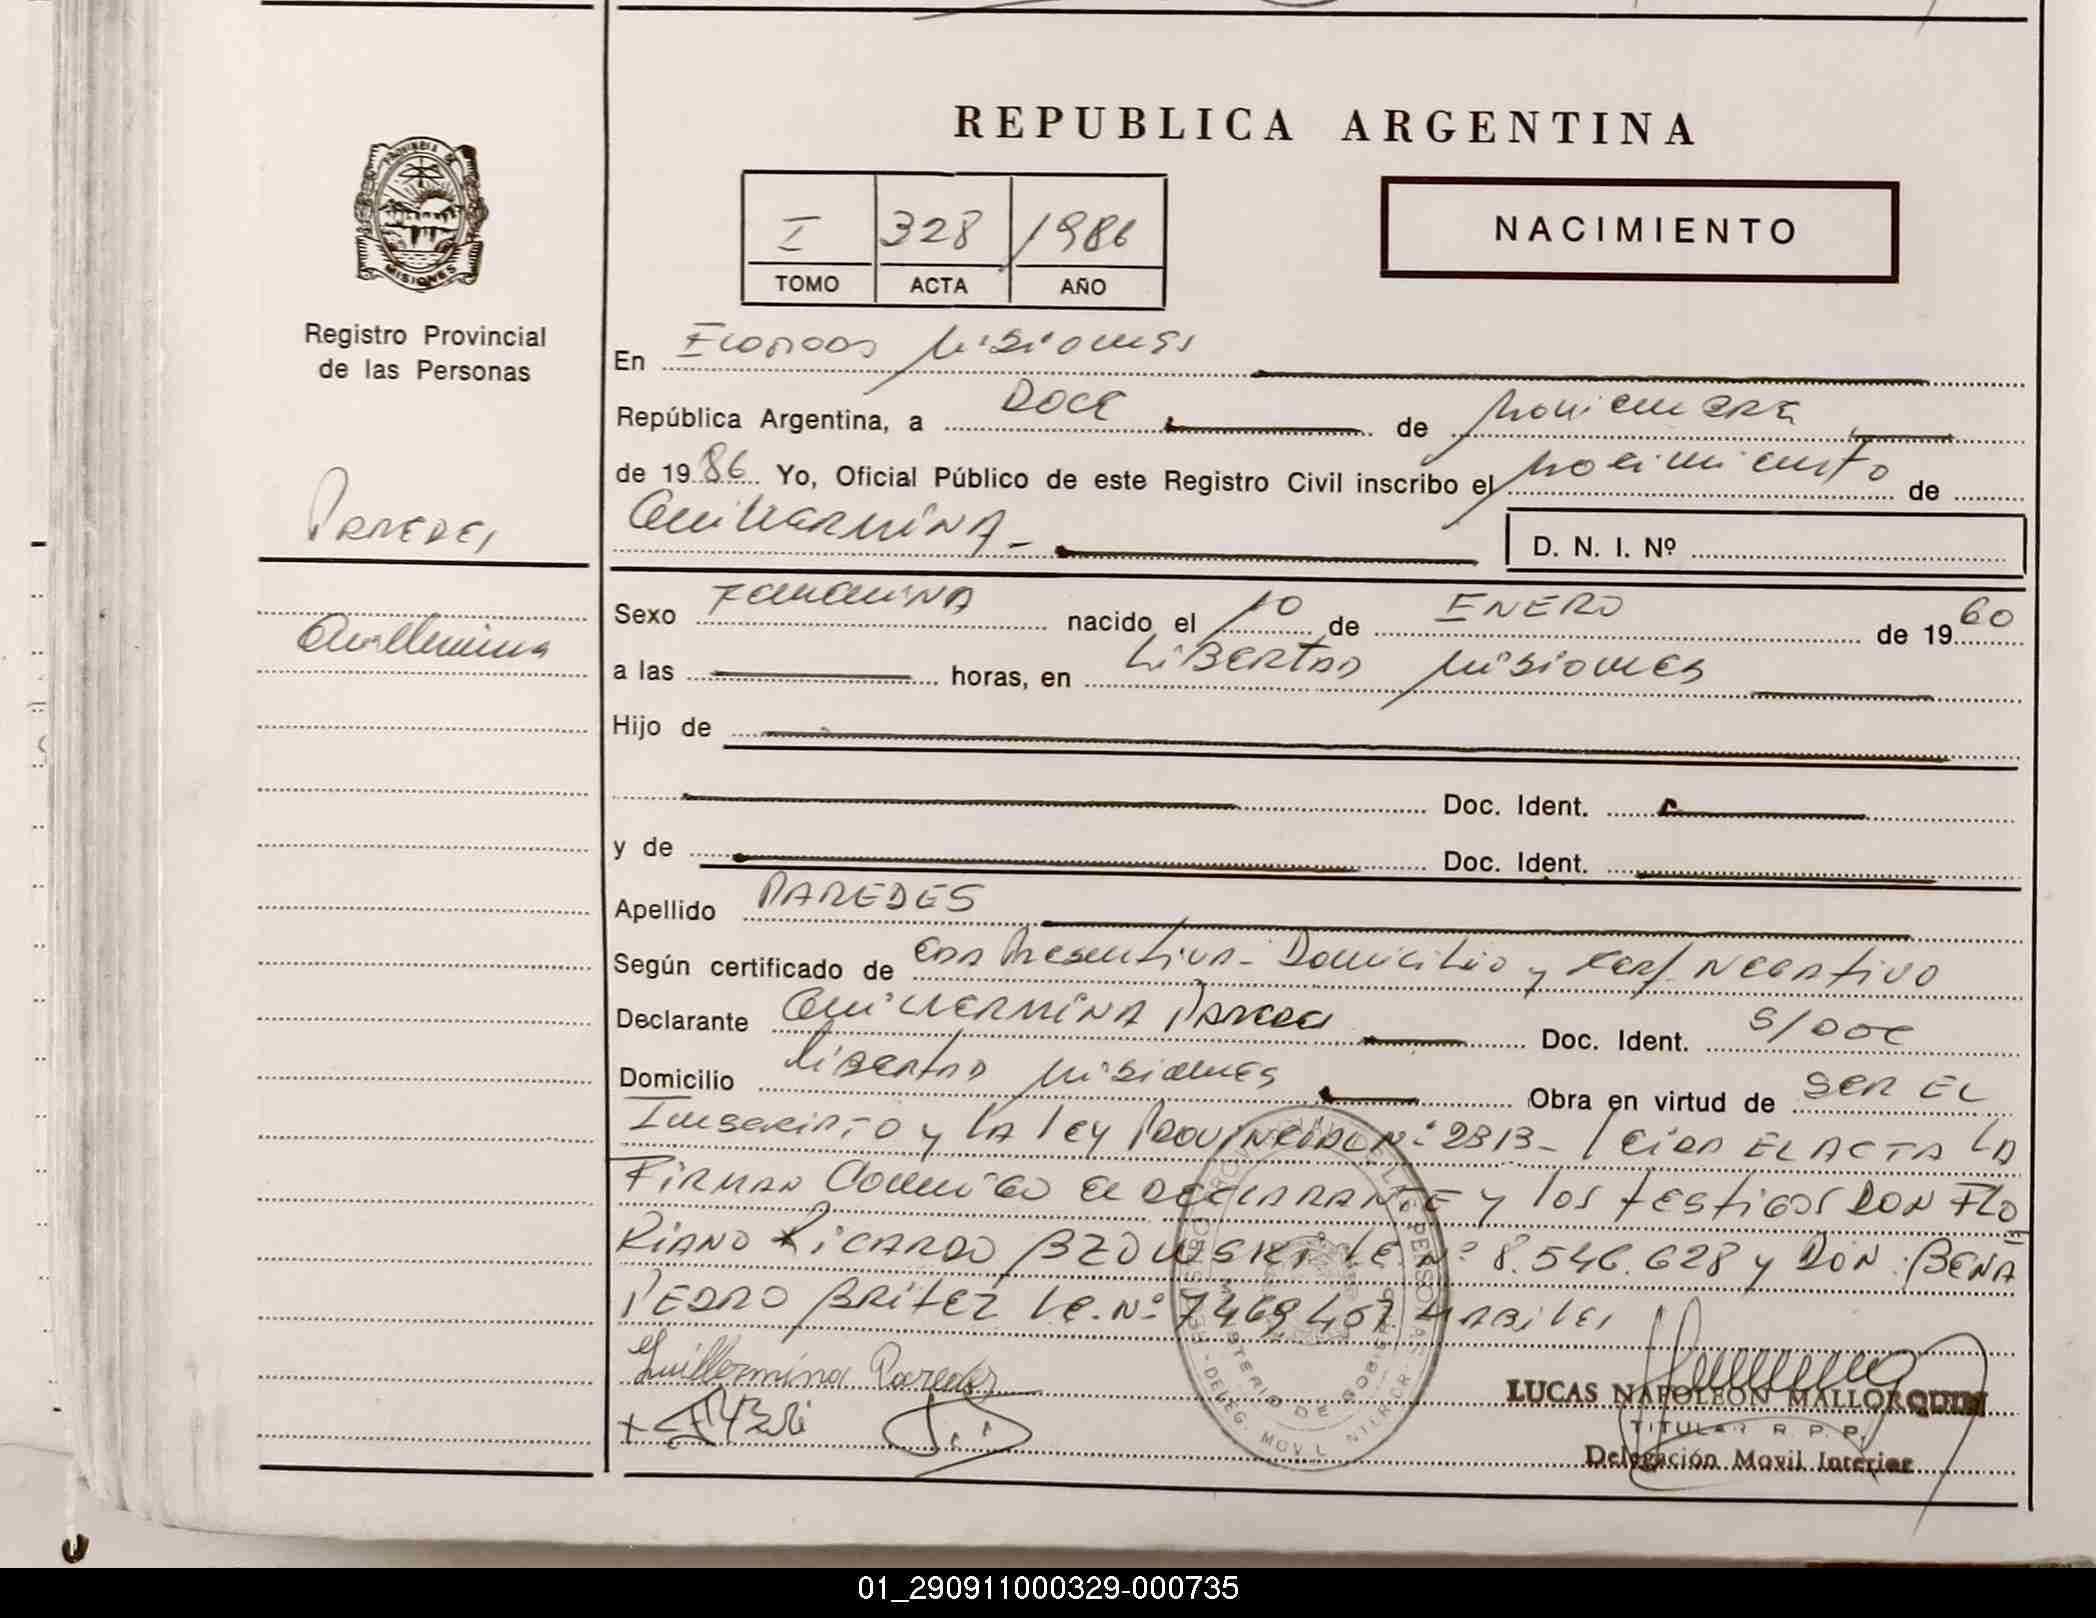 REPUBLICA ARGENTINA
PROVINCIA DE
MISIONES
Registro Provincial
de las Personas
NACIMIENTO
I 328 1986
TOMO ACTA AÑO
En Eldorado Misiones
República Argentina, a Doce de Noviembre
de 1986 Yo, Oficial Público de este Registro Civil inscribo el Nacimiento de
PAREDES
Guillermina
GuillerMINA -
D. N. I. Nº
Sexo FemeNINA nacido el 10 de ENERO de 1960
a las horas, en LiBERTAD Misiones
Hijo de
Doc. Ident.
y de Doc. Ident.
Apellido PAREDES
Según certificado de Domicilio y Cert NEGATIVO
Declarante GuillERMINA PAREDES Doc. Ident. S/DOC
Domicilio LiBERTAD Misiones Obra en virtud de SER EL
INSCRIPTO y LA ley PROVINCIAL Nº 2313- leida EL ACTA LA
FIRMAN Conmigo el DECLARANTE y los testigos DON FLO
RIANO RICARDO BZOWSKI LE Nº 8.546.628 y DON BENA
PEDRO BRITEZ le. Nº 7469407 HABiles
Guillermina Paredes
LUCAS NAPOLEON MALLORQUIN
TITULAR R. P. P.
Delegación Movil Interior
01_290911000329-000735